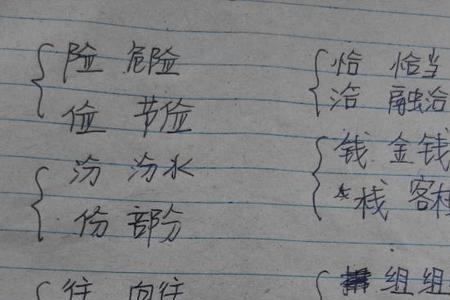 险 危险
俭 节俭
汾 汾水
份 部分
往 向往
恰 恰当
洽 融洽
钱 金钱
栈 客栈
组 组